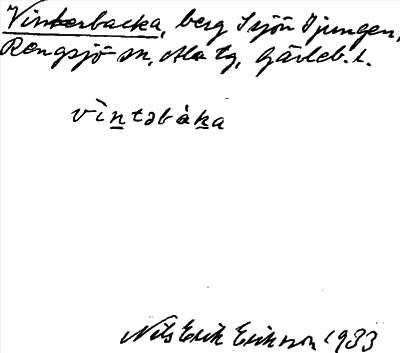 Vinterbacka, berg I sjön Djungen,
Rengsjö sn, Ala tg, Gävleb. l.
vìntəbàka
Nils Erik Eriksson 1933